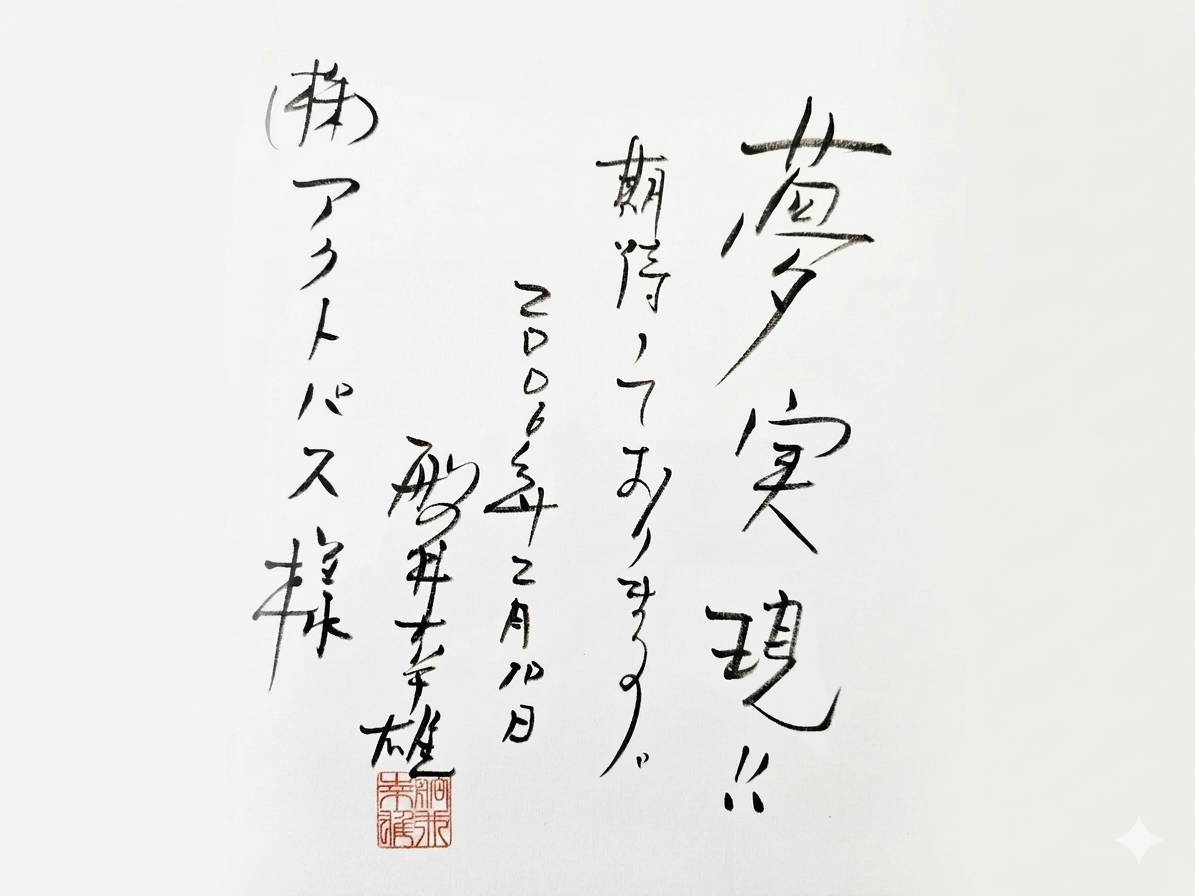 夢実現!!
期待しております。
2006年2月10日
井幸雄
㈱アクトパス様